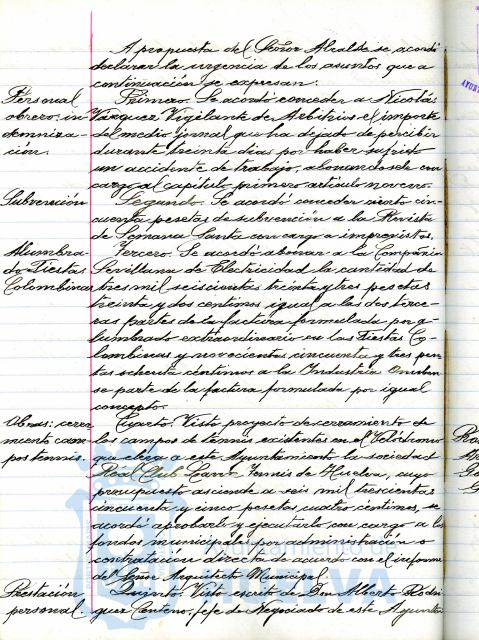 A propuesta del Señor Alcalde se acordó
declarar la urgencia de los asuntos que a
continuación se expresan:
Personal
obrero: in
demniza-
ción.
Primero. Se acordó conceder a Nicolás
Vázquez Vigilante de Arbitrios el importe
del medio jornal que ha dejado de percibir
durante treinta días por haber sufrido
un accidente de trabajo, abonandosele con
cargo al capítulo primero artículo noveno.
Subvención
Segundo. Se acordó conceder ciento cin-
cuenta pesetas de subvención a la Revista
de Semana Santa con cargo a imprevistos.
Alumbra-
do Fiestas
Colombinas
Tercero. Se acordó abonar a la Compañía
Sevillana de Electricidad la cantidad de
tres mil seiscientas treinta y tres pesetas
treinta y dos centimos igual a las dos terce-
ras partes de la factura formulada por a-
lumbrado extraordinario en las Fiestas Co-
lombinas y novecientas cincuenta y tres pese-
tas ochenta centimos a la Industria
se parte de la factura formulada por igual
concepto.
Obras: cerra
miento cam
pos tennis.
Cuarto. Visto proyecto de cerramiento de
los campos de tennis existentes en el Velódromo
que eleva a este Ayuntamiento la sociedad
Real Club Lawn Tennis de Huelva, cuyo
presupuesto asciende a seis mil trescientas
cincuenta y cinco pesetas cuatro centimos, se
acordó aprobarlo y ejecutarlo con cargo a los
fondos municipales por administración o
contratacion directa de acuerdo con el informe
del Señor Arquitecto Municipal.
Prestación
personal.
Quinto. Visto escrito de Don Alberto Rodri
guez Centeno, jefe de Negociado de este Ayunta
Ayuntamiento de
HUELVA